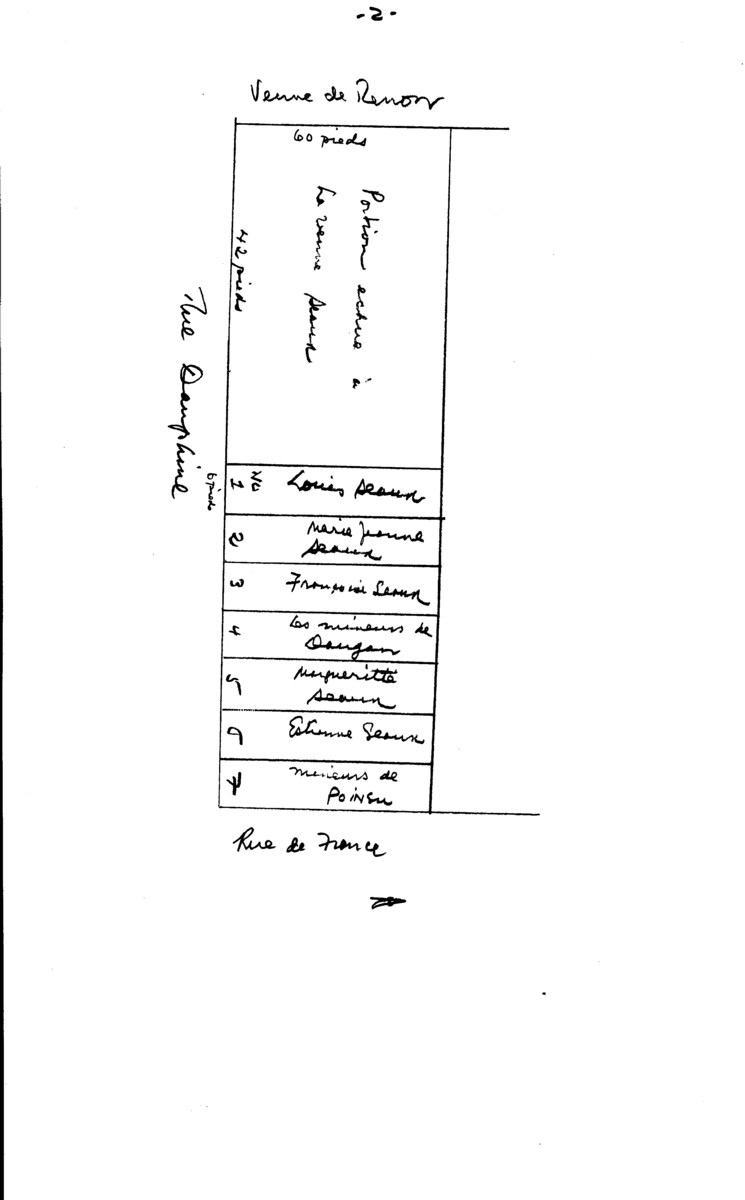 -2-
Veuve de Renon
60 pieds
Portion echue à
La veuve Seaux
42 pieds
Rue Dauphine
6 pieds
No
1 Louis Seaux
2 Marie Jeanne
Seaux
3 Françoise Seaux
4 Les mineurs de
Daugan
5 Margueritte
Seaux
6 Estienne Seaux
7 mineurs de
Poinsu
Rue de France